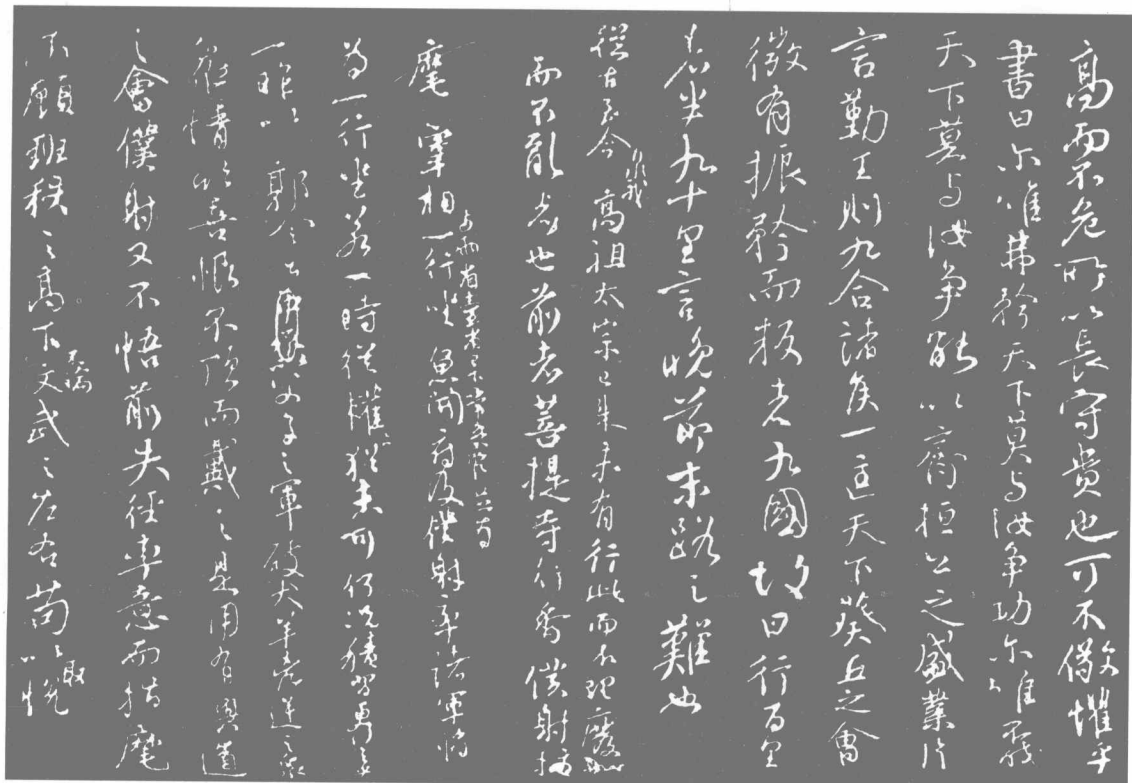 高而不危所以長守貴也可不儆懼乎
書曰尔唯弗矜天下莫与汝争功尔唯不伐
天下莫与汝争能以齊桓公之盛業片
言勤王則九合諸侯一匡天下葵丘之會
微有振矜而叛者九國故曰行百里
者半九十里言晚節末路之難也
從古至今自我高祖太宗已来未有行此而不理廢此
而不亂者也前者菩提寺行香僕射指
麾宰相与兩省臺省已下常参官並為
一行坐魚開府及僕射率諸軍将
為一行坐若一時從權猶未可何况積習更行之乎
一昨以郭令公以父子之軍破犬羊凶逆之衆
衆情欣喜恨不頂而戴之是用有興道
之會僕射又不悟前失徑率意而指麾
不顧班秩之高下不論文武之左右苟以取悦